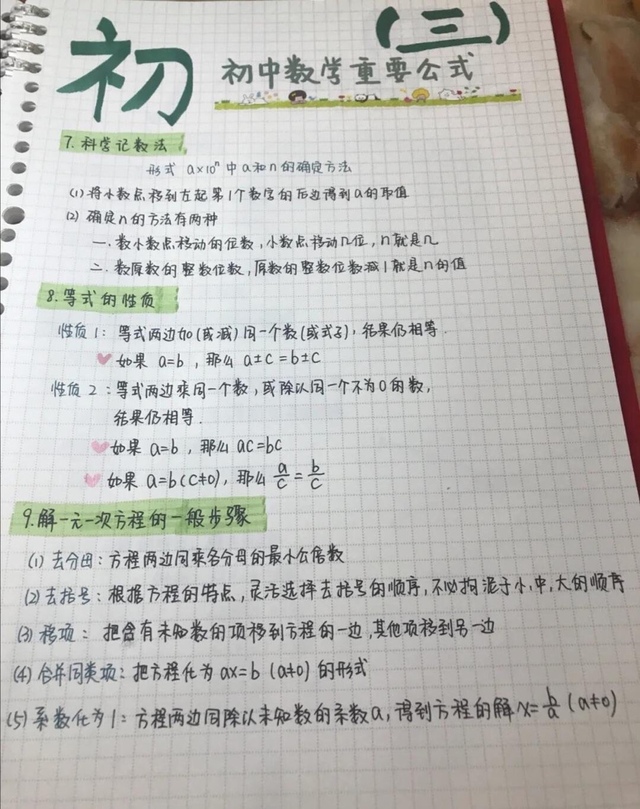 初
(三)
初中数学重要公式
7.科学记数法
形式 a×10ⁿ 中a和n的确定方法
(1)将小数点移到左起第1个数字的后边得到a的取值
(2)确定n的方法有两种
一.数小数点移动的位数,小数点移动几位,n就是几
二.数原数的整数位数,原数的整数位数减1就是n的值
8.等式的性质
性质1:等式两边加(或减)同一个数(或式子),结果仍相等.
如果 a=b,那么 a±c=b±c
性质2:等式两边乘同一个数,或除以同一个不为0的数,
结果仍相等.
如果 a=b,那么 ac=bc
如果 a=b(c≠0),那么 a/c=b/c
9.解一元一次方程的一般步骤
(1)去分母:方程两边同乘各分母的最小公倍数
(2)去括号:根据方程的特点,灵活选择去括号的顺序,不必拘泥于小,中,大的顺序
(3)移项:把含有未知数的项移到方程的一边,其他项移到另一边
(4)合并同类项:把方程化为ax=b(a≠0)的形式
(5)系数化为1:方程两边同除以未知数的系数a,得到方程的解x=b/a(a≠0)